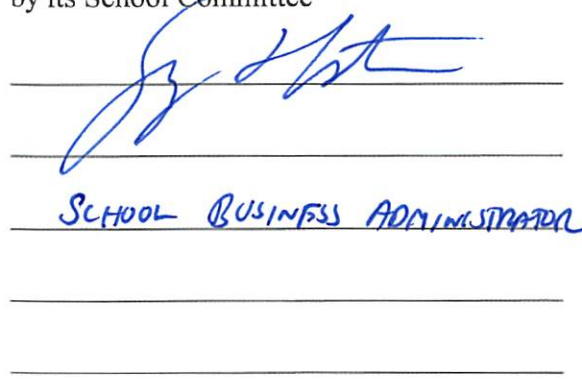 by its School Committee
SCHOOL BUSINESS ADMINISTRATOR